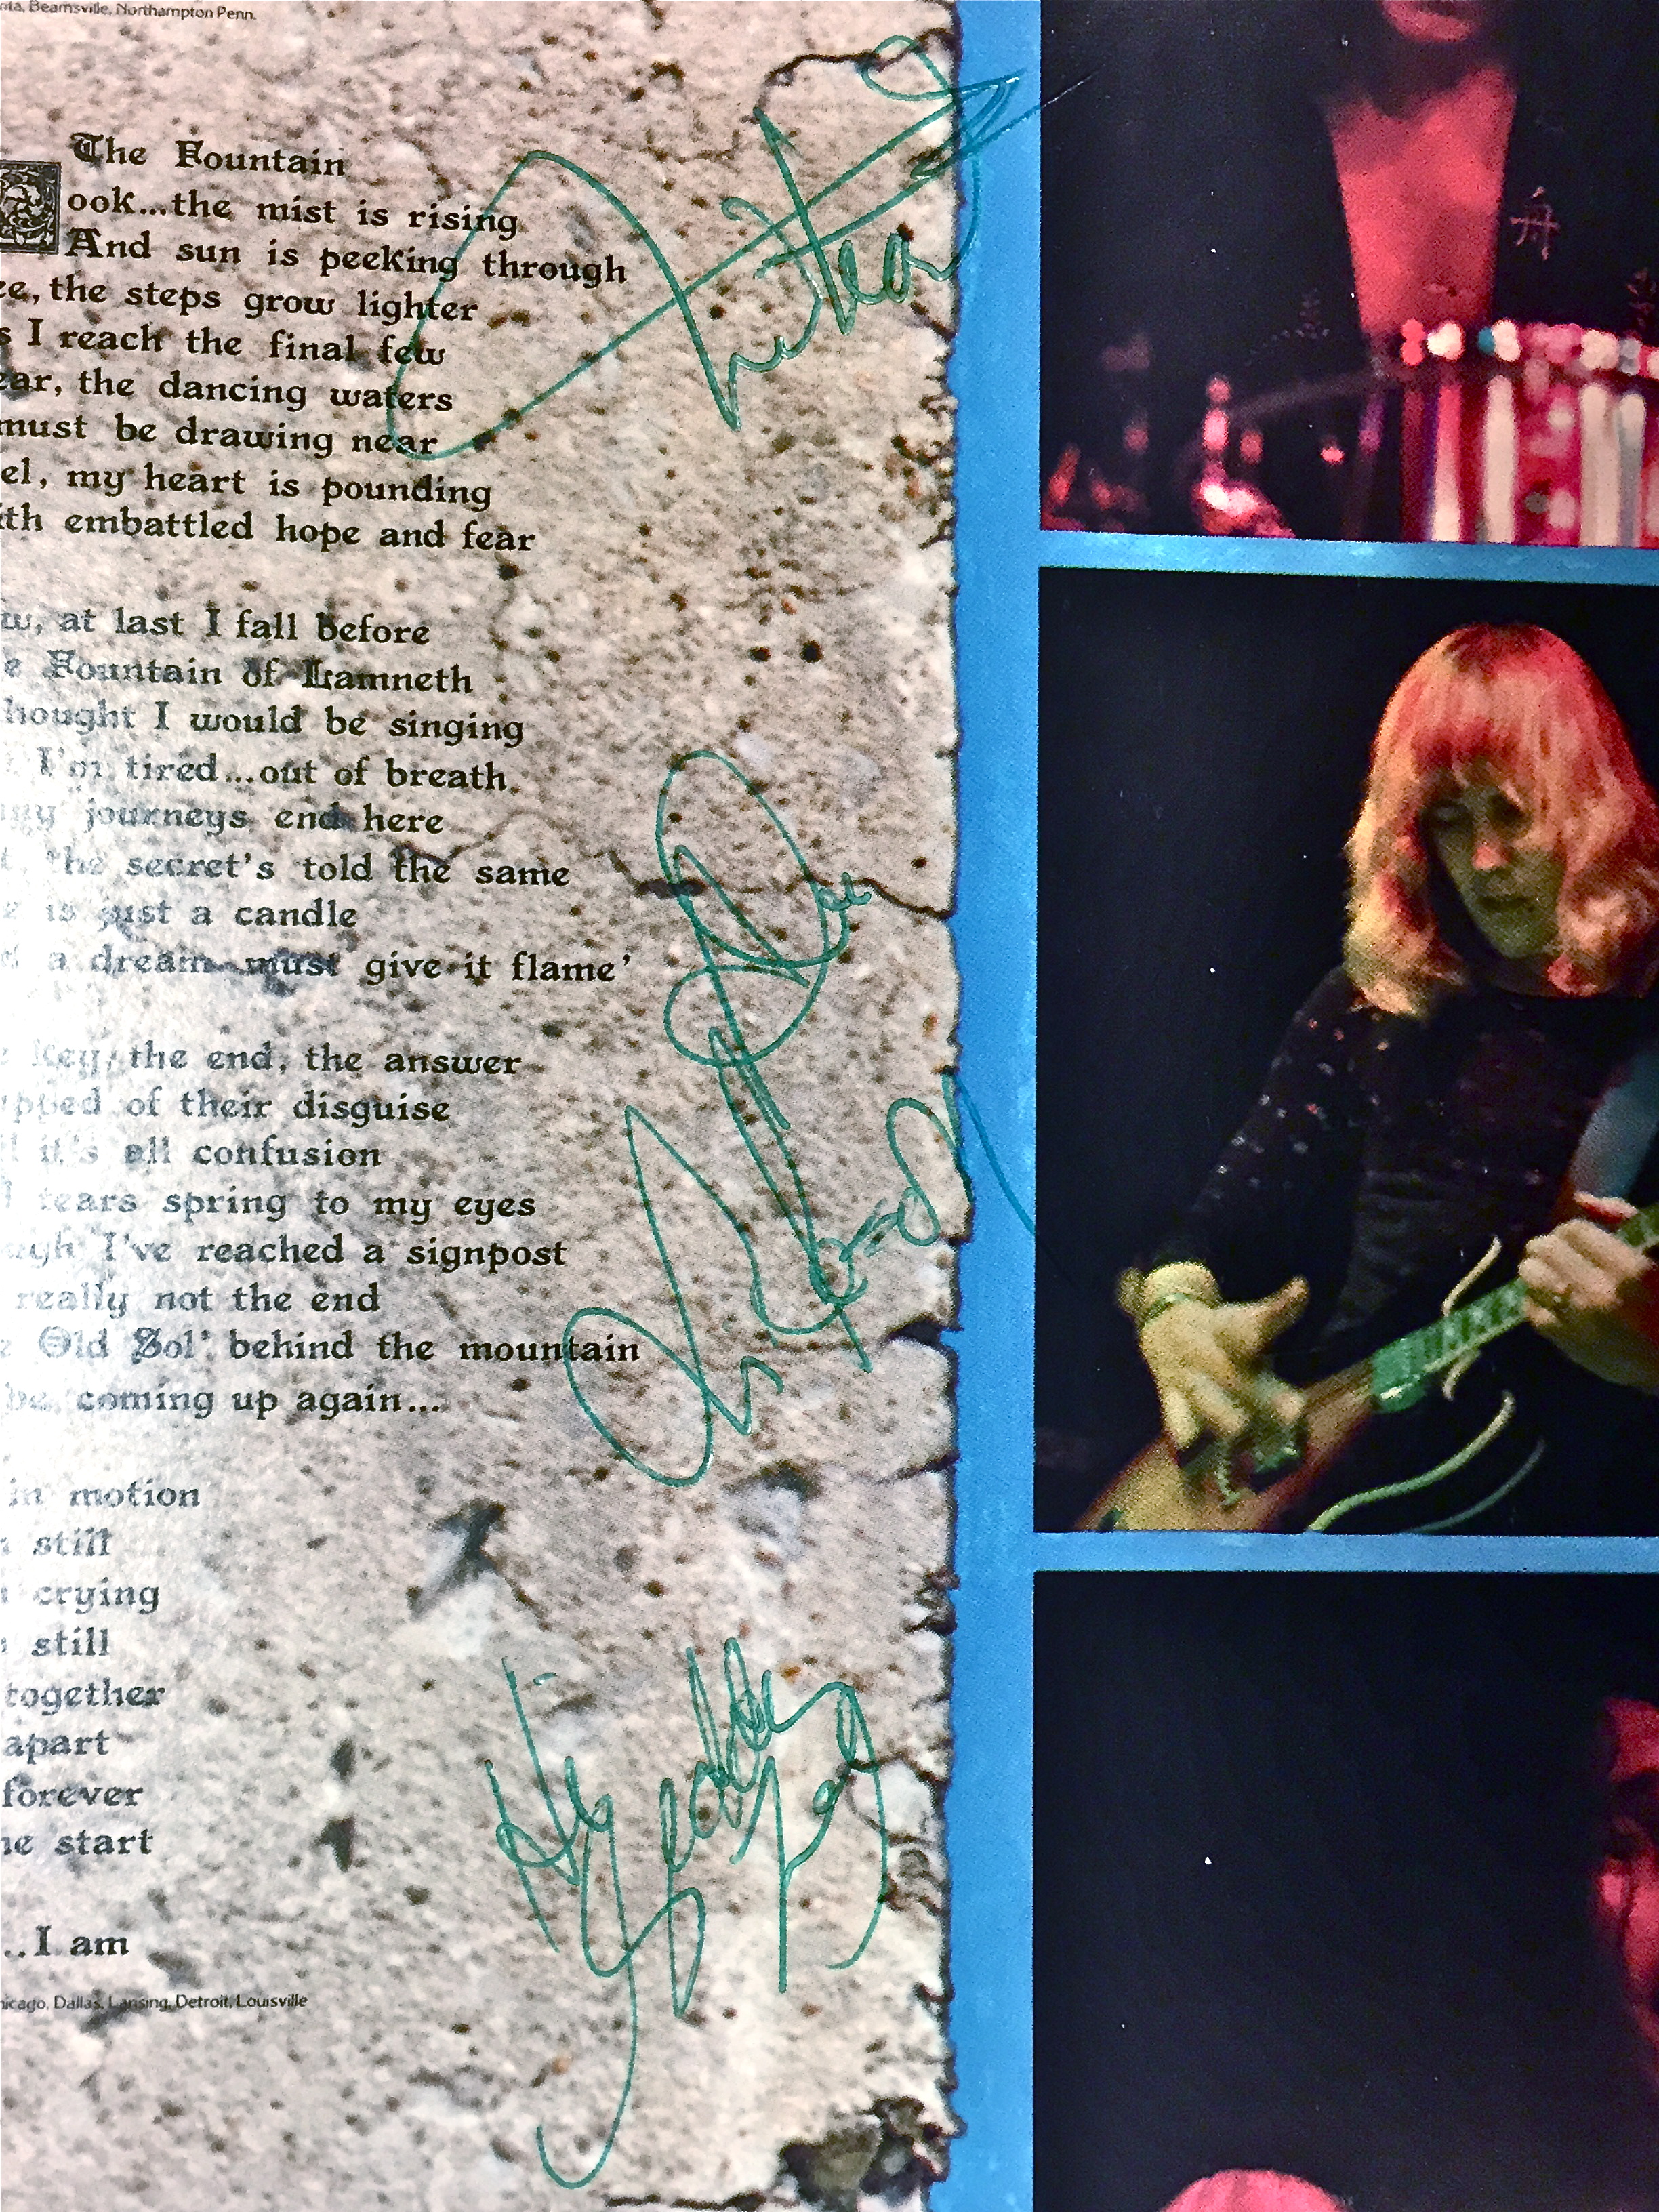 nta, Beamsville, Northampton Penn.
The Fountain
ook...the mist is rising
And sun is peeking through
ee, the steps grow lighter
s I reach the final few
ear, the dancing waters
must be drawing near
el, my heart is pounding
ith embattled hope and fear
w, at last I fall before
e Fountain of Lamneth
hought I would be singing
I'm tired...out of breath
my journeys end here
the secret's told the same
is just a candle
a dream must give it flame'
Key, the end, the answer
pped of their disguise
it's all confusion
tears spring to my eyes
ugh I've reached a signpost
really not the end
e Old Sol' behind the mountain
be coming up again...
in motion
still
crying
still
together
apart
forever
he start
..I am
hicago, Dallas, Lansing, Detroit, Louisville
Hi
Geddy
Lee
舟